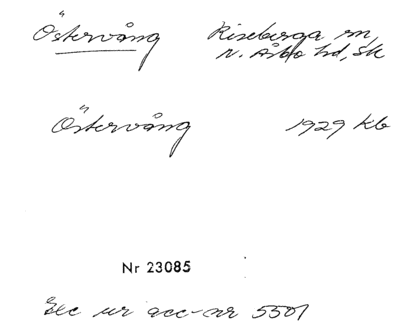 Östervång Riseberga sn,
N. Åsbo hd, Sk
Östervång 1929 Kb
Nr 23085
Exc ur acc-nr 5501